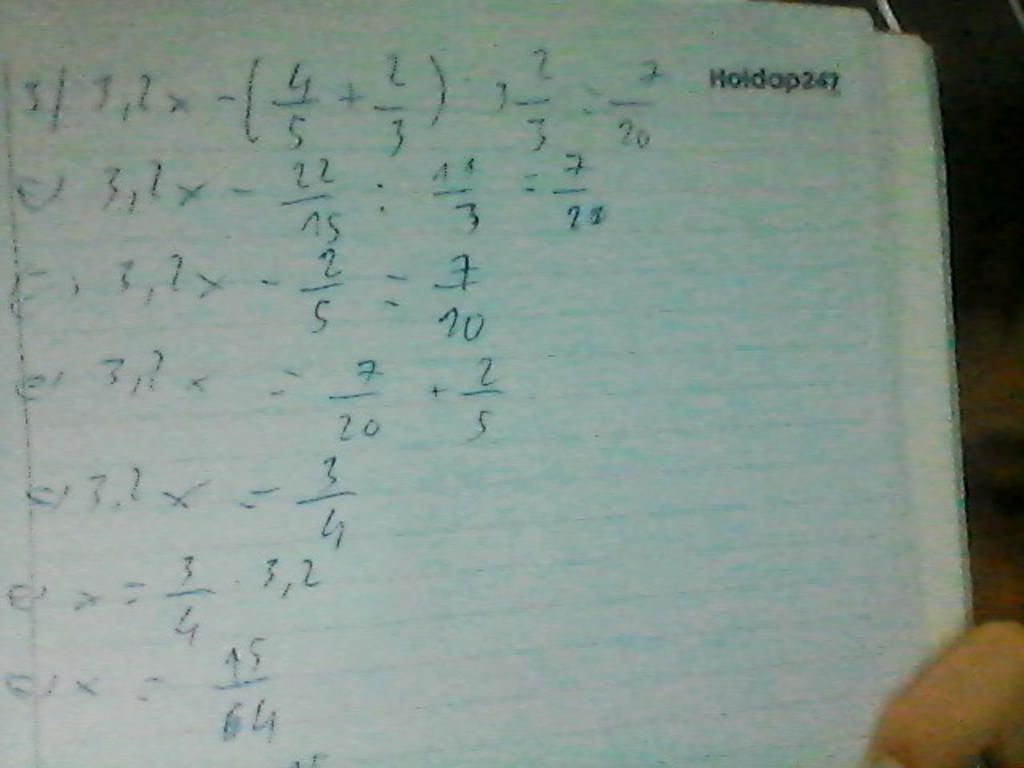 3/ 3,2x - (4/5 + 2/3) : 3 2/3 = 7/20
Hoidap247
⇔ 3,2x - 22/15 : 11/3 = 7/20
⇔ 3,2x - 2/5 = 7/10
⇔ 3,2x = 7/20 + 2/5
⇔ 3,2x = 3/4
⇔ x = 3/4 . 3,2
⇔ x = 15/64